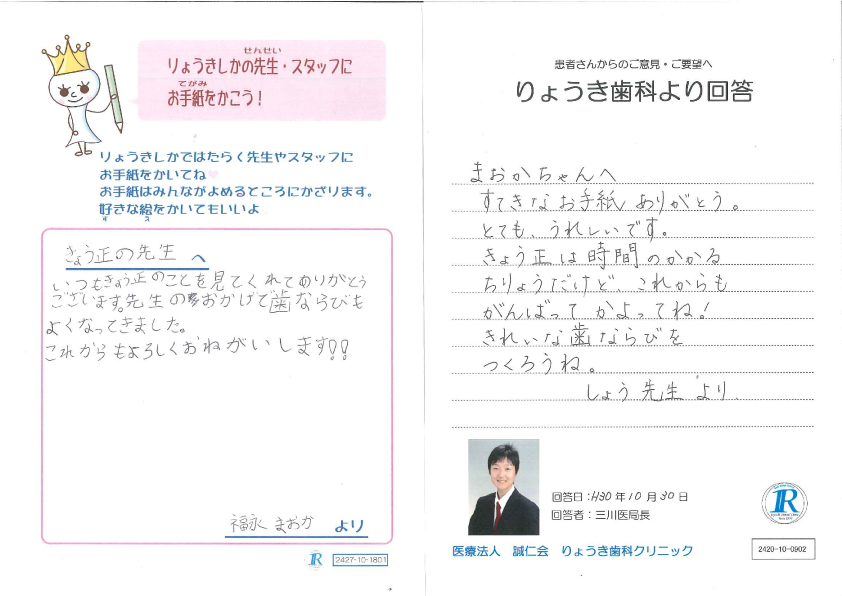 せんせい
りょうきしかの先生・スタッフに
てがみ
お手紙をかこう！
りょうきしかではたらく先生やスタッフに
お手紙をかいてね
お手紙はみんながよめるところにかざります。
好きな絵をかいてもいいよ
す え
きょう正の先生 へ
いつもきょう正のことを見てくれてありがとう
ございます。先生のおかげで歯ならびも
よくなってきました。
これからもよろしくおねがいします!!
福永 まおか より
2427-10-1801
患者さんからのご意見・ご要望へ
りょうき歯科より回答
まおかちゃんへ
すてきなお手紙ありがとう。
とても、うれしいです。
きょう正は時間のかかる
ちりょうだけど、これからも
がんばってかよってね!
きれいな歯ならびを
つくろうね。
しょう先生より
回答日：H30年10月30日
回答者：三川医局長
医療法人 誠仁会 りょうき歯科クリニック
R
2420-10-0902